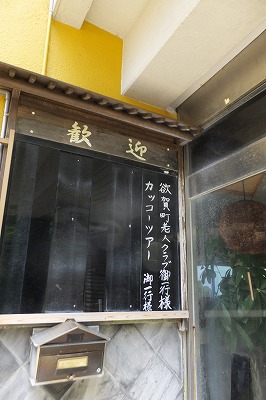 歓迎
欲賀町老人クラブ御一行様
カッコーツアー 御一行様